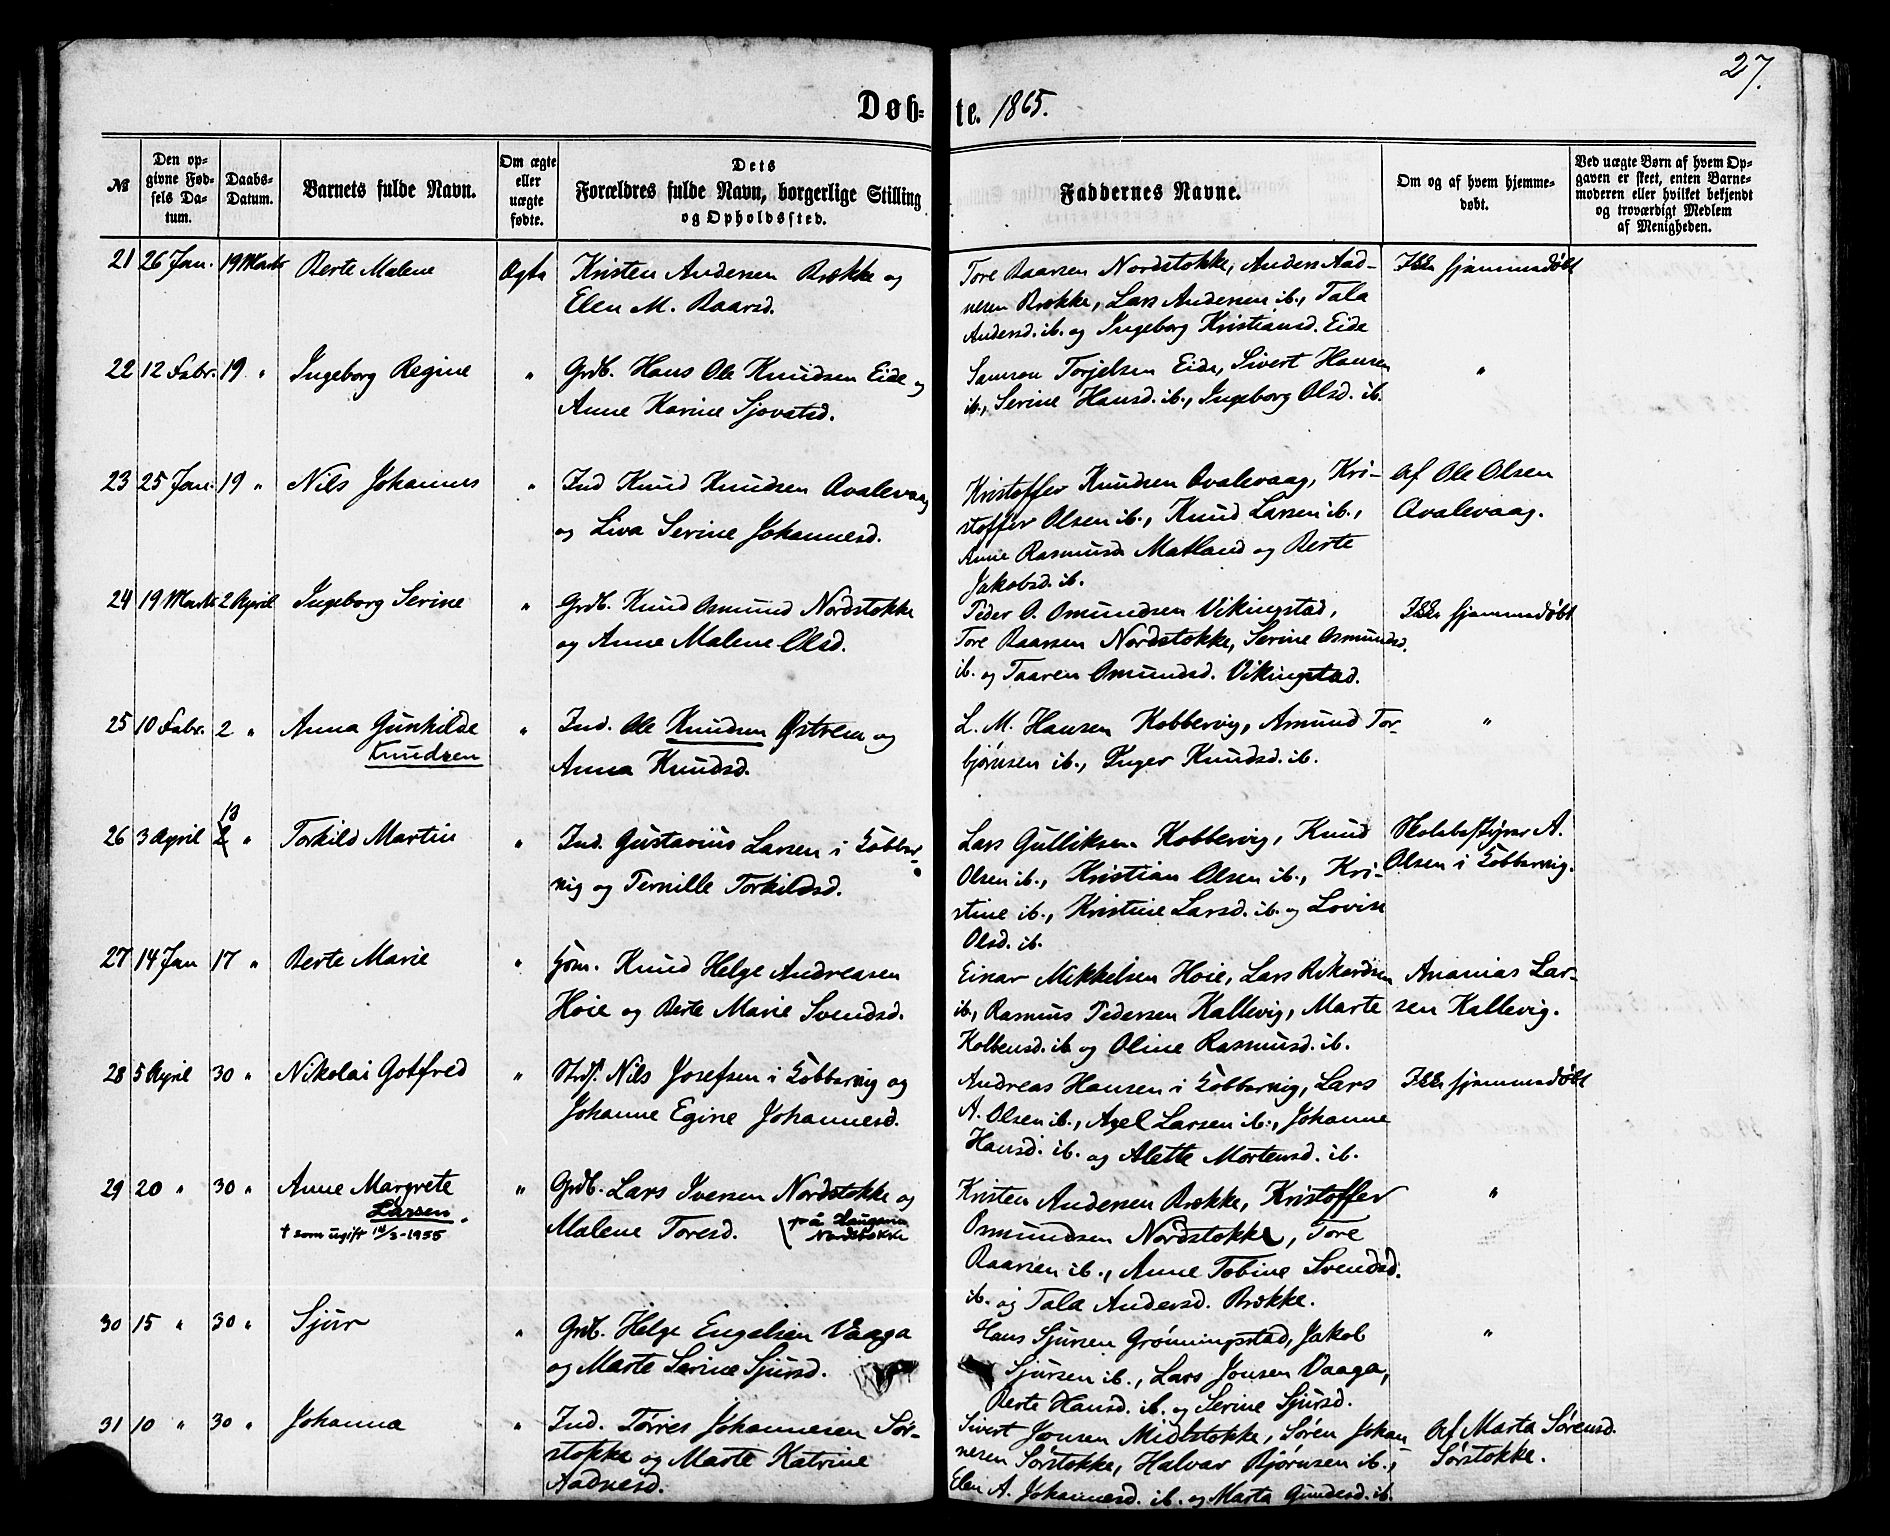 27.
Døb- te. 1865.
№
Den op-
givne Fød-
sels Da-
tum.
Daabs-
Datum.
Barnets fulde Navn.
Om ægte
eller
uægte
fødte.
Dets
Forældres fulde Navn, borgerlige Stilling
og Opholdssted.
Faddernes Navne.
Om og af hvem hjemme-
døbt.
Ved uægte Børn af hvem Op-
gaven er skeet, enten Barne-
moderen eller hvilket bekjendt
og troværdigt Medlem
af Menigheden.
21 26 Jan. 19 Marts Berte Malene Ægte Kristen Andersen Bække og
Elen M. Baarsd.
Tore Baarsen Nordstokke, Anders Aad-
nesen Bække, Lars Andersen ib., Tala
Andersd. ib. og Ingeborg Kristiansd. Eide
Ikke hjemmedøbt
22 12 Febr. 19 " Ingeborg Regine " Grdb. Hans Ole Knudsen Eide og
Anne Karine Sjovatsd.
Samson Torjelsen Eide, Sivert Hansen
ib., Serine Hansd. ib., Ingeborg Olsd. ib.
"
23 25 Jan. 19 " Nils Johannes " Ind Knud Knudsen Avalevaag
og Liva Serine Johannesd.
Kristoffer Knudsen Avalevaag, Kri-
stoffer Olsen ib., Knud Larsen ib.,
Anne Rasmusd. Matland og Berte
Jakobsd. ib.
Af Ole Olsen
Avalevaag.
24 19 Marts 2 April Ingeborg Serine " Grdb. Knud Osmund Nordstokke
og Anne Malene Olsd.
Peder O. Omundsen Vikingstad,
Tore Baarsen Nordstokke, Serine Osmundsd.
ib. og Taaren Omundsd. Vikingstad.
Ikke hjemmedøbt
25 10 Febr. 2 " Anna Gunhilde
Knudsen
" Ind. Ole Knudsen Østrem og
Anna Knudsd.
L. M. Hansen Kobbervig, Amund Tor-
bjørnsen ib., Inger Knudsd. ib.
"
13
26 3 April 2 " Torkild Martin " Ind. Gustavius Larsen i Kobber-
vig og Pernille Torkildsd.
Lars Gulliksen Kobbervig, Knud
Olsen ib., Kristian Olsen ib., Kri-
stine ib., Kristine Larsd. ib. og Lovise
Olsd. ib.
Skolebestyrer A.
Olsen i Kobbervig.
27 14 Jan 17 " Berte Marie " Knud Helge Andreasen
Hoie og Berte Marie Svendsd.
Einar Mikkelsen Hoie, Lars Rikardsen
ib., Rasmus Pedersen Kallevig, Marte
Kolbensd. ib. og Oline Rasmusd. ib.
Ananias Lar-
sen Kallevig.
28 5 April 30 " Nikolai Gotfred " Strds. Nils Josefsen i Kobbervig og
Johanne Egine Johannesd.
Andreas Hansen i Kobbervig, Lars
A. Olsen ib., Axel Larsen ib., Johanne
Hansd. ib. og Alette Mortensd. ib.
Ikke hjemmedøbt
29 20 " 30 " Anne Margrete
Larsen.
† som ugift 14/3-1955
" Grdb. Lars Iversen Nordstokke og
Malene Toresd. (på Haugaren
Nordstokke
Kristen Andersen Bække, Kristoffer
Osmundsen Nordstokke, Tore
Baarsen ib., Anne Tobine Svendsd.
ib. og Tala Andersd. Bække.
"
30 15 " 30 " Sjur " Grdb. Helge Engelsen Vaaga
og Marte Serine Sjursd.
Hans Sjursen Grønningstad, Jakob
Sjursen ib., Lars Jonsen Vaaga,
Berte Hansd. ib. og Serine Sjursd.
"
31 10 " 30 " Johanna " Ind. Tørres Johannesen Sør-
stokke og Marte Katrine
Aadnesd.
Sivert Jonsen Midtstokke, Søren Johan
nesen Sørstokke, Halvar Bjørnsen ib.,
Elen A. Johannesd. ib. og Marta Gundesd. ib.
Af Marta Sørensd.
Sørstokke.